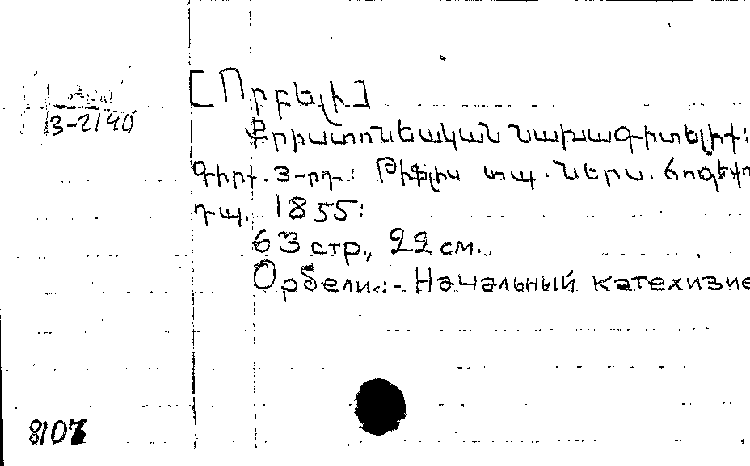 3-2140
[Որբելի]
Քրիստոնեական նախագիտելիք:
Գիրք. 3-րդ.: Թիֆլիս տպ. Ներս.
դպ. 1855:
63 стр., 22 см.
Орбели.:- Начальный катехизис
8107